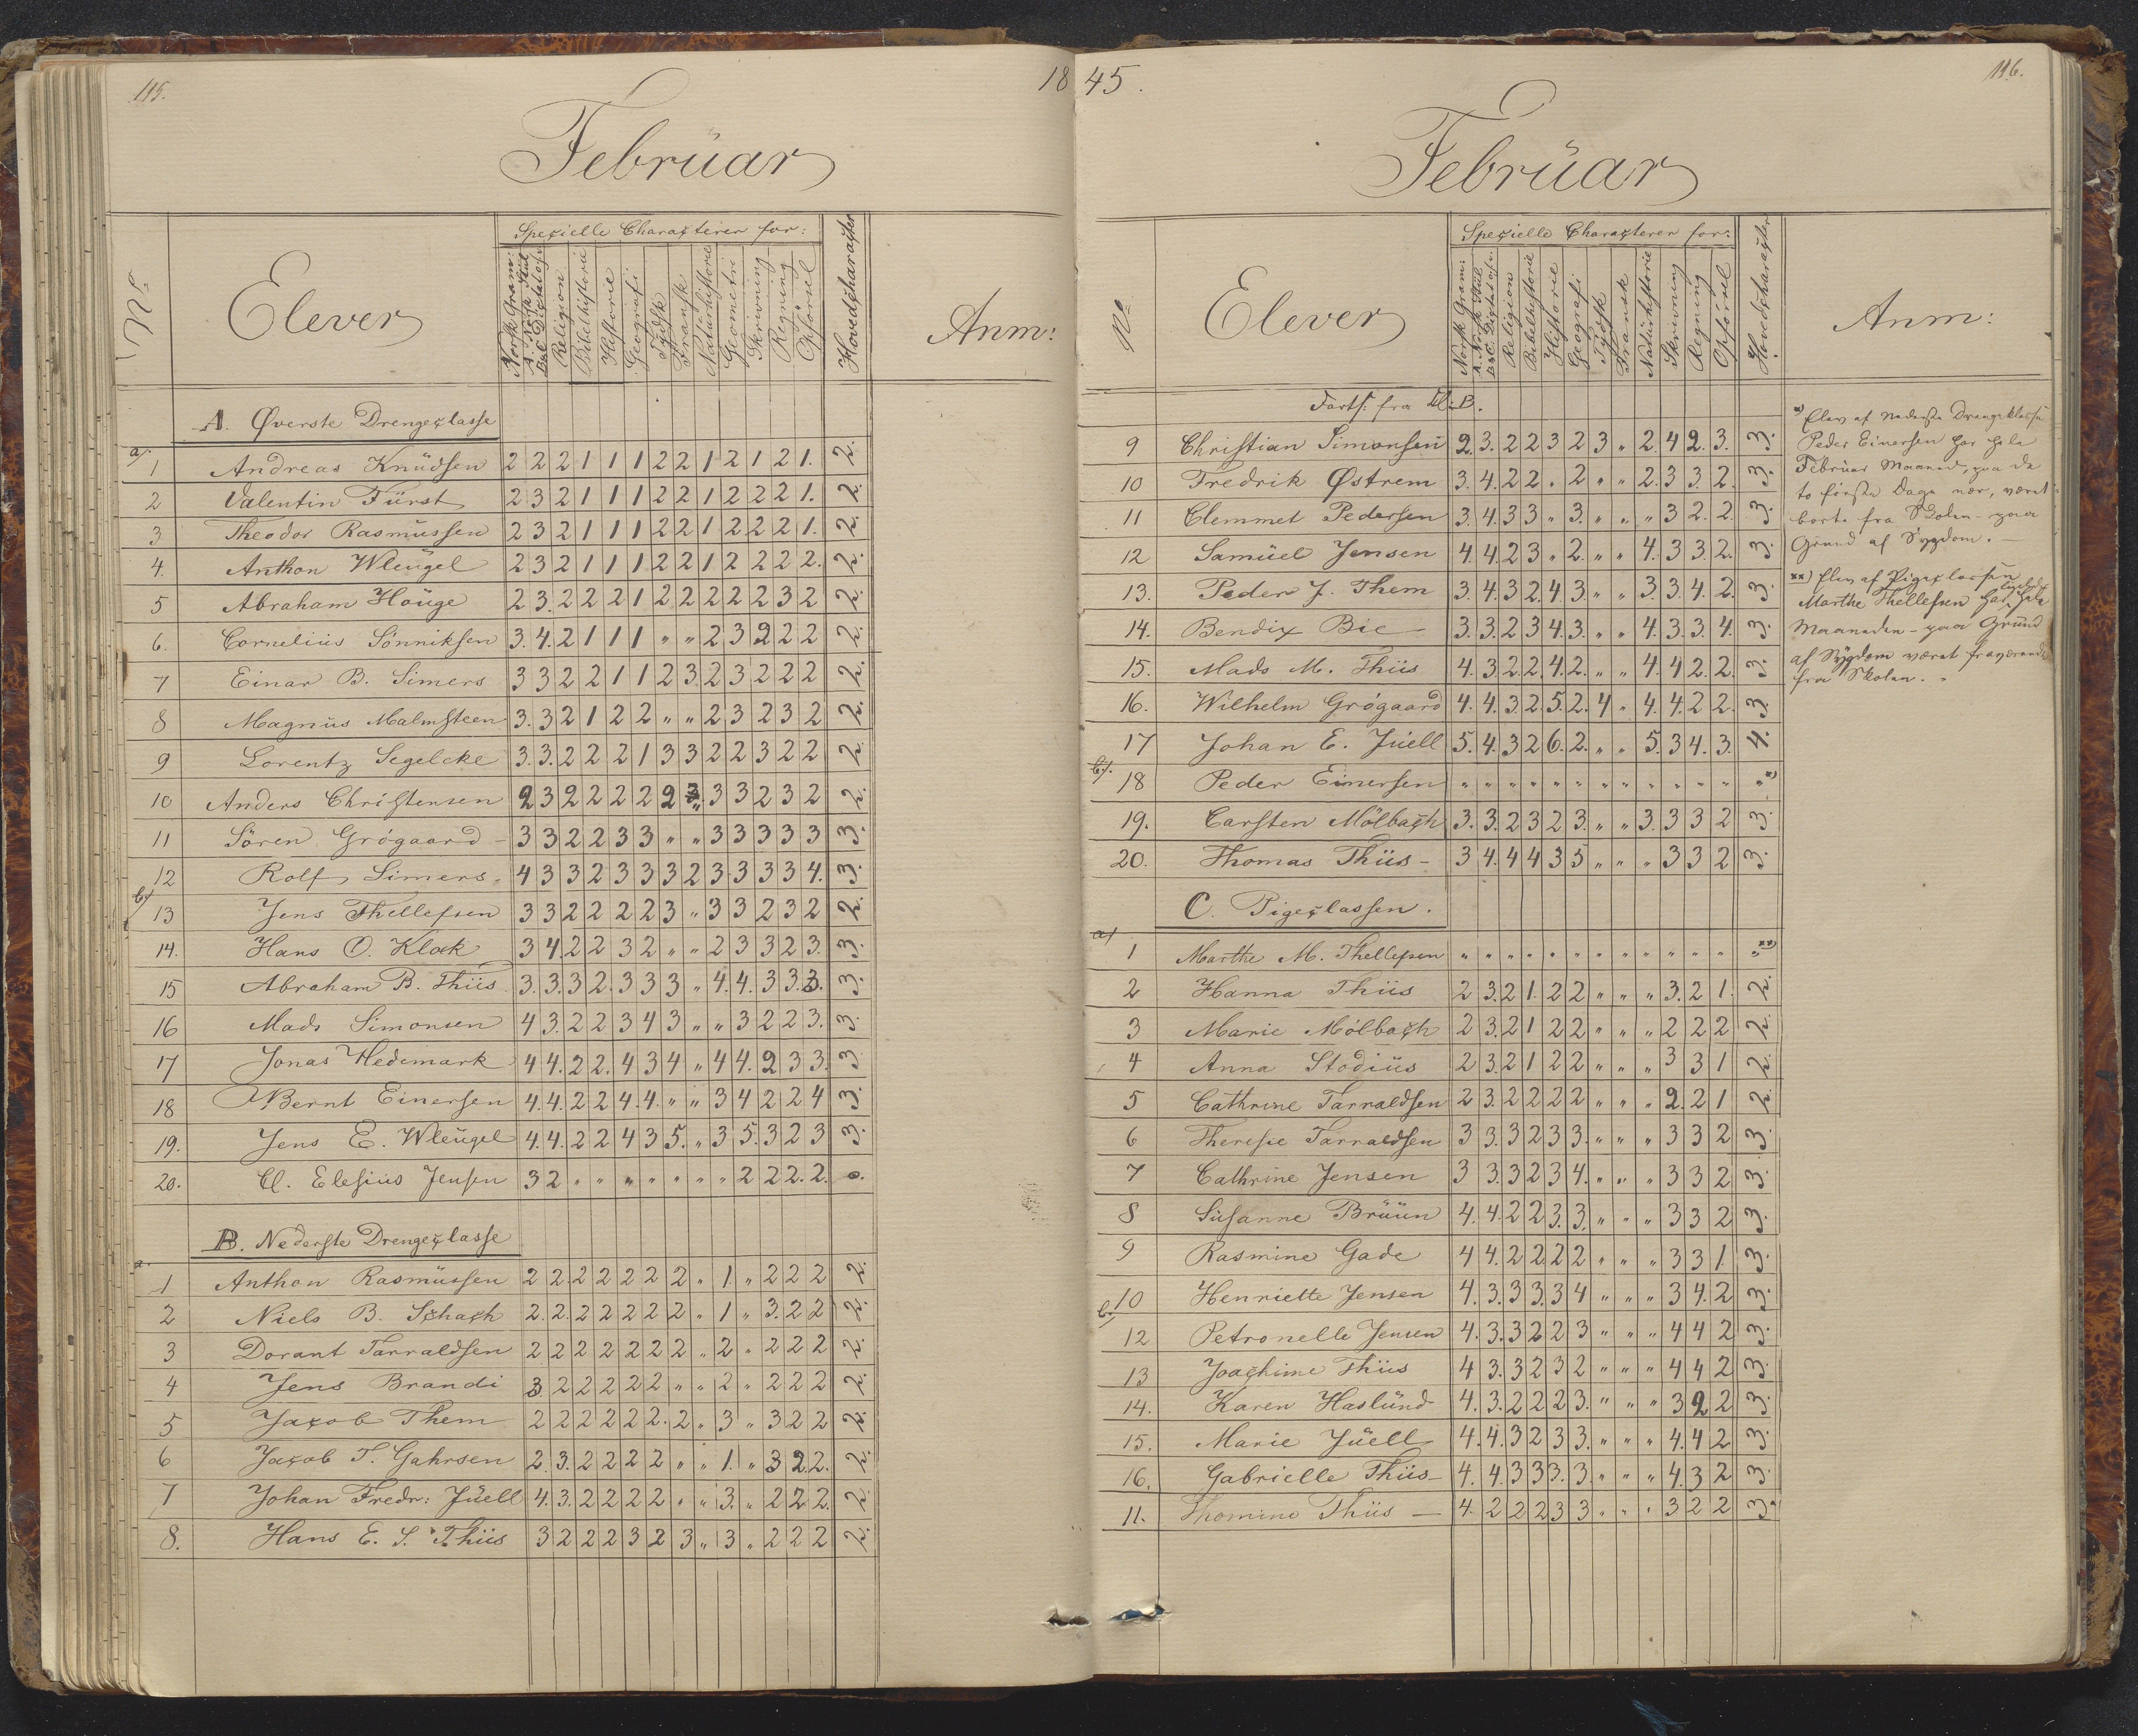 115.
18
Februar
Nº
Elever
Specielle Characterer for:
Norsk Gram:
A. Norsk Stiil
B & C. Dictatøv.
Religion
Bibelhistorie
Historie
Geografi
Tydsk
Fransk
Naturhistorie
Geometri
Skrivning
Regning
Opførsel
Hovedcharacter
Anm:
A. Øverste Drengeclasse
a/.
1 Andreas Knüdsen 2 2 2 1 1 1 2 2 1 2 1 2 1. 2.
2 Valentin Fürst 2 3 2 1 1 1 2 2 1 2 2 2 1. 2.
3 Theodor Rasmüssen 2 3 2 1 1 1 2 2 1 2 2 2 1. 2.
4. Anthon Wleügel 2 3 2 1 1 1 2 2 1 2 2 2 2. 2.
5 Abraham Hoüge 2 3. 2 2 2 1 2 2 2 2 2 3 2 2.
6. Cornelius Sönniksen 3. 4. 2 1 1 1 " " 2 3 2 2 2 2.
7 Einar B. Simers 3 3 2 2 1 1 2 3 2 3 2 2 2 2.
8 Magnüs Malmsteen 3. 3 2 1 2 2 " " 2 3 2 3 2 2.
9 Lorentz Segelcke 3. 3. 2 2 2 1 3 3 2 2 3 2 2 2.
10 Anders Christensen 2 3 2 2 2 2 2 " 3 3 2 3 2 2.
11 Sören Grögaard - 3 3 2 2 3 3 " " 3 3 3 3 3 3.
12 Rolf Simers 4 3 3 2 3 3 3 2 3 3 3 3 4. 3.
b/.
13 Jens Thellefsen 3 3 2 2 2 2 3 " 3 3 2 3 2 2.
14. Hans O. Klok 3 4. 2 2 3 2 " " 2 3 3 2 3. 3.
15 Abraham B. Thiis 3. 3. 3 2. 3 3 3 " 4. 4. 3 3. 3. 3.
16 Mads Simonsen 4 3. 2 2 3 4 3 " " 3 2 2 3. 3.
17 Jonas Hedemark 4 4. 2 2. 4 3 4 " 4 4. 2 3 3. 3
18 Bernt Einersen 4. 4. 2 2 4. 4. " " 3 4 2 2 4 3.
19. Jens E. Wleügel 4. 4. 2 2 4 3 5. " 3 5. 3 2 3 3.
20. Cl. Elesiüs Jensen 3 2 " " " " " " " 2 2 2. 2. 0.
B. Nederste Drengeclasse
a.
1 Anthon Rasmüssen 2 2. 2 2 2 2 2 " 1. " 2 2 2 2.
2 Niels B. Schach 2. 2. 2 2 2 2 2 " 1 " 3. 2 2 2.
3 Dorant Tarraldsen 2 2 2 2 2 2 2 " 2 " 2 2 2 2.
4 Jens Brandi 3 2 2 2 2 2 " " 2 " 2 2 2 2.
5 Jacob Them 2 2 2 2 2 2. 2 " 3 " 3 2 2 2.
6 Jacob T. Gahrsen 2. 3. 2 2 2 2 " " 1. " 3 2. 2. 2.
7 Johan Fredr: Jüell 4. 3. 2 2 2 2 " " 3. " 2 2 2. 2
8. Hans E. S. Thiis 3 2 2 2 3 2 3 " 3 " 2 2 2 2.
45.
116.
Februar
Nº
Elever
Specielle Characterer for:
Norsk Gram:
A. Norsk Stiil
B & C. Dictatøv.
Religion
Bibelhistorie
Historie
Geografi
Tydsk
Fransk
Naturhistorie
Skrivning
Regning
Opförsel
Hovedcharacter
Anm:
Forts: fra Kl: B.
9 Christian Simonsen 2. 3. 2 2 3 2 3 " 2. 4 2. 3. 3.
10 Fredrik Østrem 3. 4. 2 2 " 2 " " 2. 3 3. 2. 3.
11 Clemmet Pedersen 3. 4. 3 3 " 3. " " " 3 2. 2. 3.
12 Samüel Jensen 4 4. 2 3 " 2. " " 4. 3 3. 2. 3.
13. Peder J. Them 3. 4. 3 2. 4. 3. " " 3. 3. 4. 2. 3.
14. Bendix Bie 3. 3. 2 3 4. 3. " " 4. 3. 3. 4. 3.
15. Mads M. Thiis 4. 3. 2 2 4. 2. " " 4. 4 2. 2. 3.
16. Wilhelm Grögaard 4. 4. 3. 2. 5. 2. 4 " 4. 4. 2 2. 3.
17 Johan E. Jüell 5. 4. 3 2 6. 2. " " 5. 3 4. 3. 4.
b/.
18 Peder Einersen " " " " " " " " " " " " " *)
19. Carsten Mölbach 3. 3. 2 3 2 3. " " 3. 3 3 2 3.
20. Thomas Thiis - 3 4. 4 4 3 5 " " " 3 3 2 3.
C. Pigeclassen.
a/
1 Marthe M. Thellefsen " " " " " " " " " " " " " **)
2 Hanna Thiis 2 3. 2 1. 2 2 " " " 3. 2 1. 2.
3 Marie Mölbach 2 3. 2 1 2 2 " " " 2 2 2 2.
4 Anna Stodiüs 2 3. 2 1 2 2 " " " 3 3 1 2.
5 Cathrine Tarraldsen 2 3. 2 2 2 2 " " " 2. 2 1 2.
6 Therese Tarraldsen 3 3. 3 2 3 3. " " " 3 3 2 3.
7 Cathrine Jensen 3 3. 3 2 3 4. " " " 3 3 2 3.
8 Süsanne Brüün 4. 4. 2 2 3. 3. " " " 3 3 2 3.
9 Rasmine Gade 4 4. 2 2. 2 2 " " " 3 3 1. 3.
10 Henriette Jensen 4. 3. 3 3. 3 4 " " " 3 4. 2 3.
b/.
12 Petronelle Jensen 4. 3. 3 2 2 3 " " " 4 4 2 3.
13 Joachime Thiis 4 3. 3 2 3 2 " " " 4 4 2 3.
14. Karen Haslünd 4. 3. 2 2 2 3. " " " 3 2 2 3.
15. Marie Jüell 4. 4. 3 2 3 3. " " " 4. 4 2 3.
16. Gabrielle Thiis 4. 4. 3 3 3. 3. " " " 4. 3 2 3.
11. Thomine Thiis — 4. 2 2 2 3 3 " " " 3 2 2 3.
*) Elev af nederste Drengeklasse
Peder Einersen har hele
Februar Maaned, paa de
to første Dage nær, været
borte fra Skolen - paa
Grund af Sygdom. —
**) Elev af Pigeclassen
Marthe Thellefsen har hele
Maaneden - paa Grund
af Sygdom været fraværende
fra Skolen.